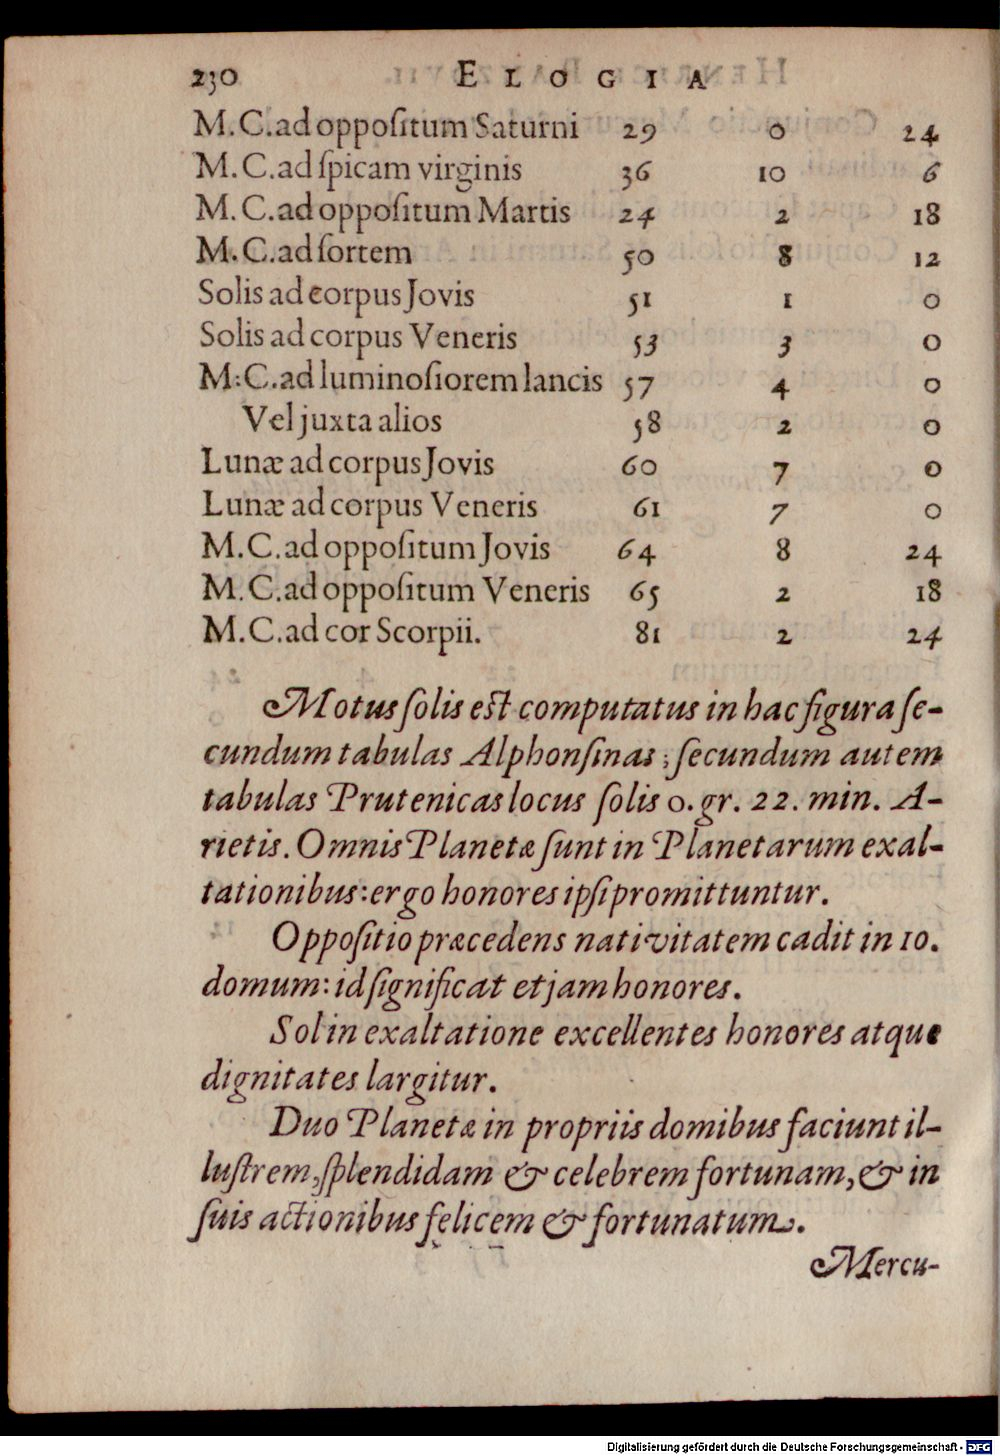 230 ELOGIA
M.C. ad oppoſitum Saturni 29 0 24
M.C. ad ſpicam virginis 36 10 6
M.C. ad oppoſitum Martis 24 2 18
M.C. ad ſortem 50 8 12
Solis ad corpus Jovis 51 1 0
Solis ad corpus Veneris 53 3 0
M:C. ad luminoſiorem lancis 57 4 0
Vel juxta alios 58 2 0
Lunæ ad corpus Jovis 60 7 0
Lunæ ad corpus Veneris 61 7 0
M.C. ad oppoſitum Jovis 64 8 24
M.C. ad oppoſitum Veneris 65 2 18
M.C. ad cor Scorpii. 81 2 24
Motus ſolis eſt computatus in hac figura ſe-
cundum tabulas Alphonſinas; ſecundum autem
tabulas Prutenicas locus ſolis 0. gr. 22. min. A-
rietis. Omnis Planetæ ſunt in Planetarum exal-
tationibus: ergo honores ipſi promittuntur.
Oppoſitio præcedens nativitatem cadit in 10.
domum: id ſignificat etjam honores.
Sol in exaltatione excellentes honores atque
dignitates largitur.
Duo Planetæ in propriis domibus faciunt il-
luſtrem, ſplendidam & celebrem fortunam, & in
ſuis actionibus felicem & fortunatum.
Mercu-
Digitalisierung gefördert durch die Deutsche Forschungsgemeinschaft - DFG